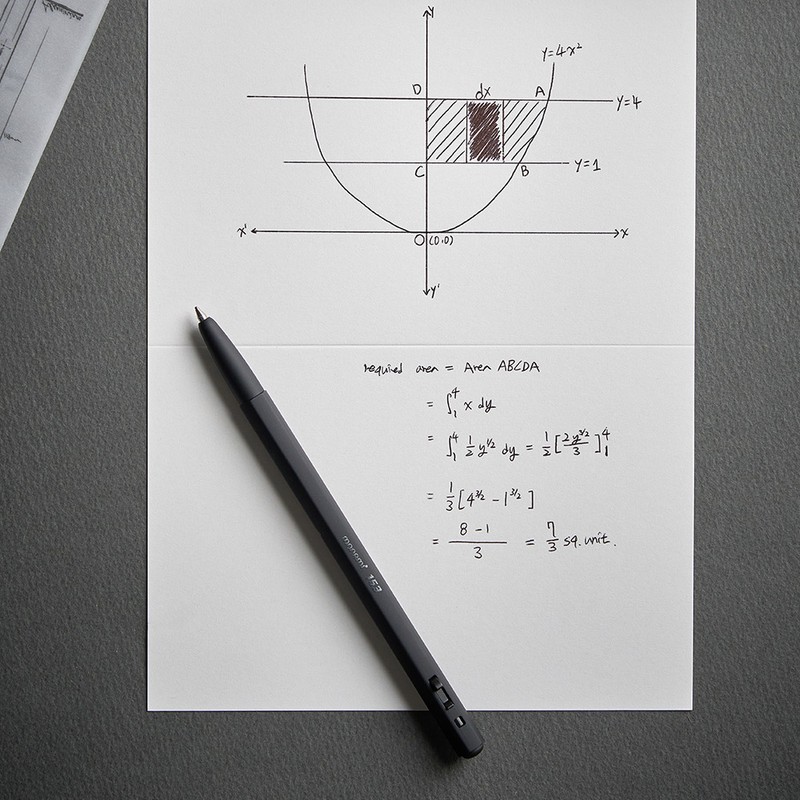 Y
Y=4x²
D dx A
Y=4
C B
Y=1
x' O (0,0) x
Y'
required area = Area ABCDA
= ∫₁⁴ x dy
= ∫₁⁴ 1/2 y^1/2 dy = 1/2 [2y^3/2 / 3]₁⁴
= 1/3 [4^3/2 - 1^3/2]
= 8-1 / 3 = 7/3 sq. unit.
monami 153